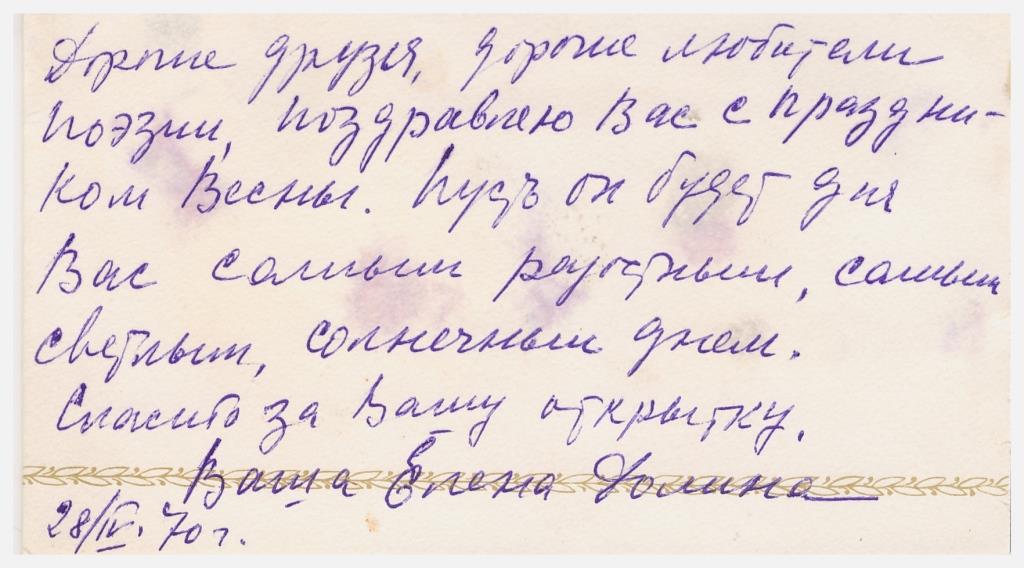 Дорогие друзья, дорогие любители
поэзии, поздравляю Вас с праздни-
ком Весны. Пусть он будет для
Вас самым радостным, самым
светлым, солнечным днем.
Спасибо за Вашу открытку.
Ваша Елена Долина
28/IV. 70 г.